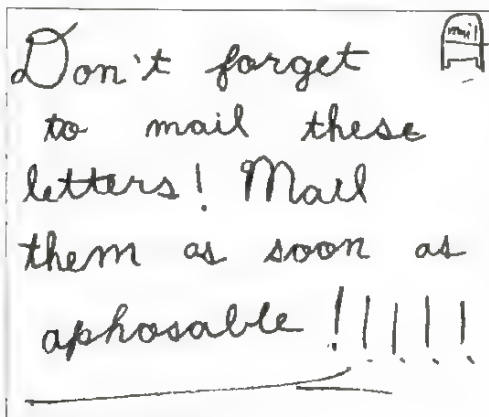 mail
Don't forget
to mail these
letters! Mail
them as soon as
aphosable !!!!!!